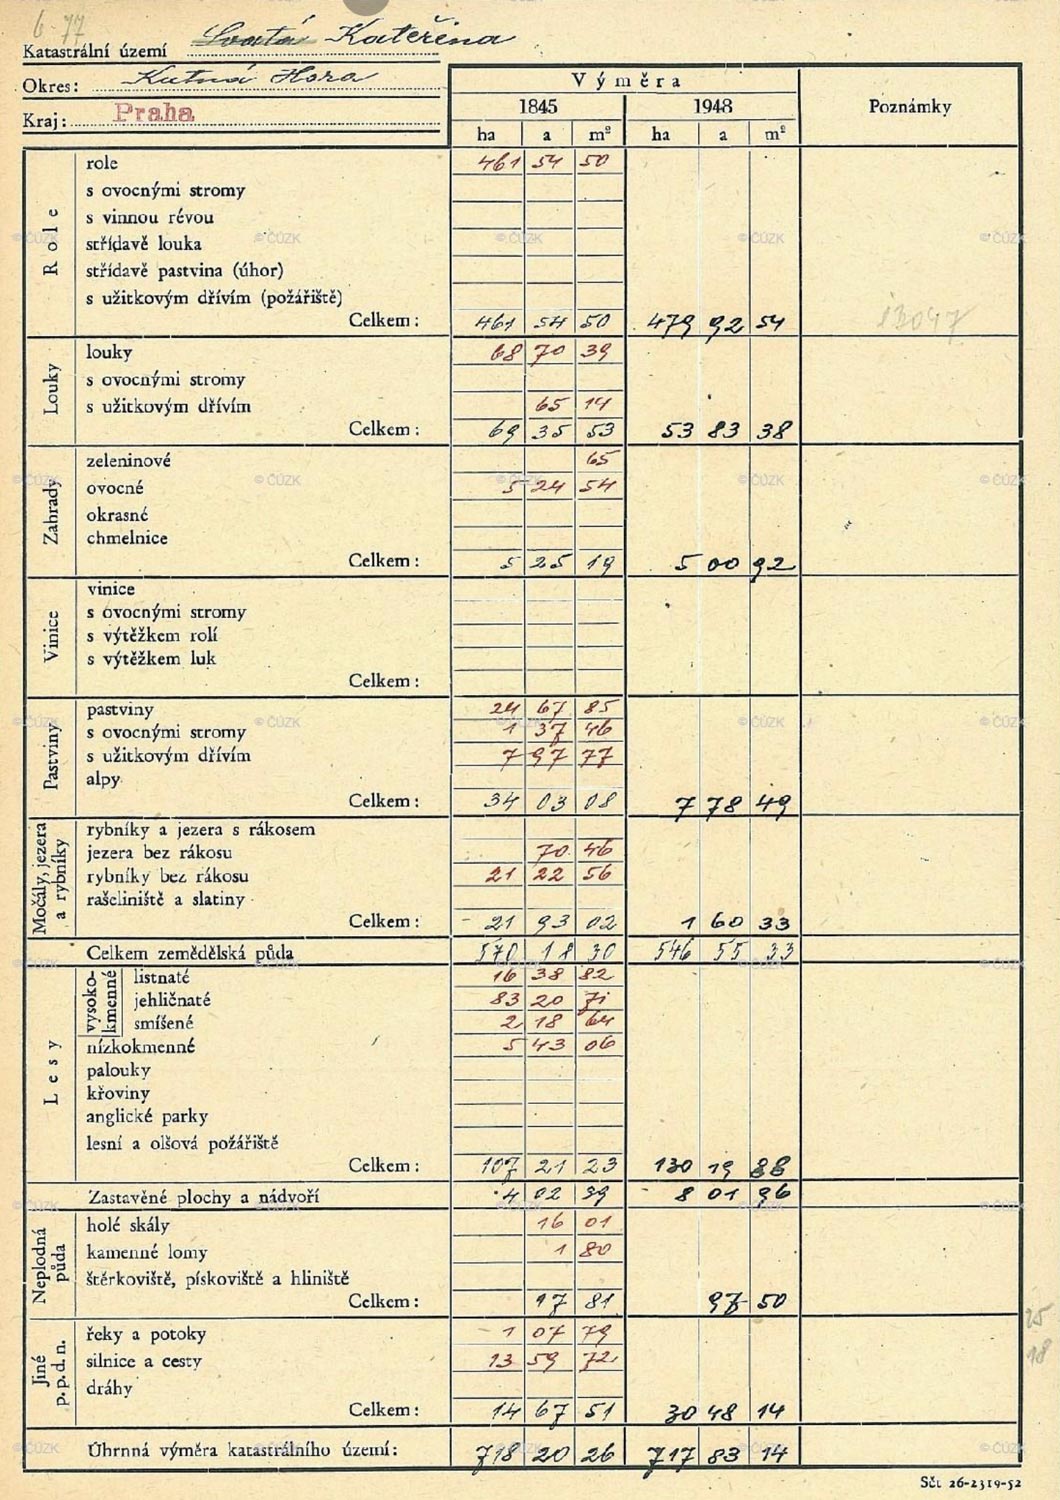 6-77
Katastrální území Svatá Kateřina
Okres: Kutná Hora
Kraj: Praha
Výměra
1845 1948 Poznámky
ha a m² ha a m²
Role
role 461 54 50
s ovocnými stromy
s vinnou révou
střídavě louka
střídavě pastvina (úhor)
s užitkovým dřívím (požářiště)
Celkem: 461 54 50 479 92 54
13047
Louky
louky 68 70 39
s ovocnými stromy
s užitkovým dřívím 65 14
Celkem: 69 35 53 53 83 38
Zahrady
zeleninové 65
ovocné 5 24 54
okrasné
chmelnice
Celkem: 5 25 19 5 00 92
Vinice
vinice
s ovocnými stromy
s výtěžkem rolí
s výtěžkem luk
Celkem:
Pastviny
pastviny 24 67 85
s ovocnými stromy 1 37 46
s užitkovým dřívím 7 97 77
alpy
Celkem: 34 03 08 7 78 49
Močály, jezera a rybníky
rybníky a jezera s rákosem
jezera bez rákosu 70 46
rybníky bez rákosu 21 22 56
rašeliniště a slatiny
Celkem: 21 93 02 1 60 33
Celkem zemědělská půda 570 18 30 546 55 33
Lesy
vysoko-kmenné
listnaté 16 38 82
jehličnaté 83 20 71
smíšené 2 18 64
nízkokmenné 5 43 06
palouky
křoviny
anglické parky
lesní a olšová požářiště
Celkem: 107 21 23 130 19 88
Zastavěné plochy a nádvoří 4 02 39 8 01 96
Neplodná půda
holé skály 16 01
kamenné lomy 1 80
štěrkoviště, pískoviště a hliniště
Celkem: 17 81 97 50
Jiné p. p. d. n.
řeky a potoky 1 07 79
silnice a cesty 13 59 72
dráhy
Celkem: 14 67 51 30 48 14
Úhrnná výměra katastrálního území: 718 20 26 717 83 14
Sčt 26-2319-52
© ČÚZK